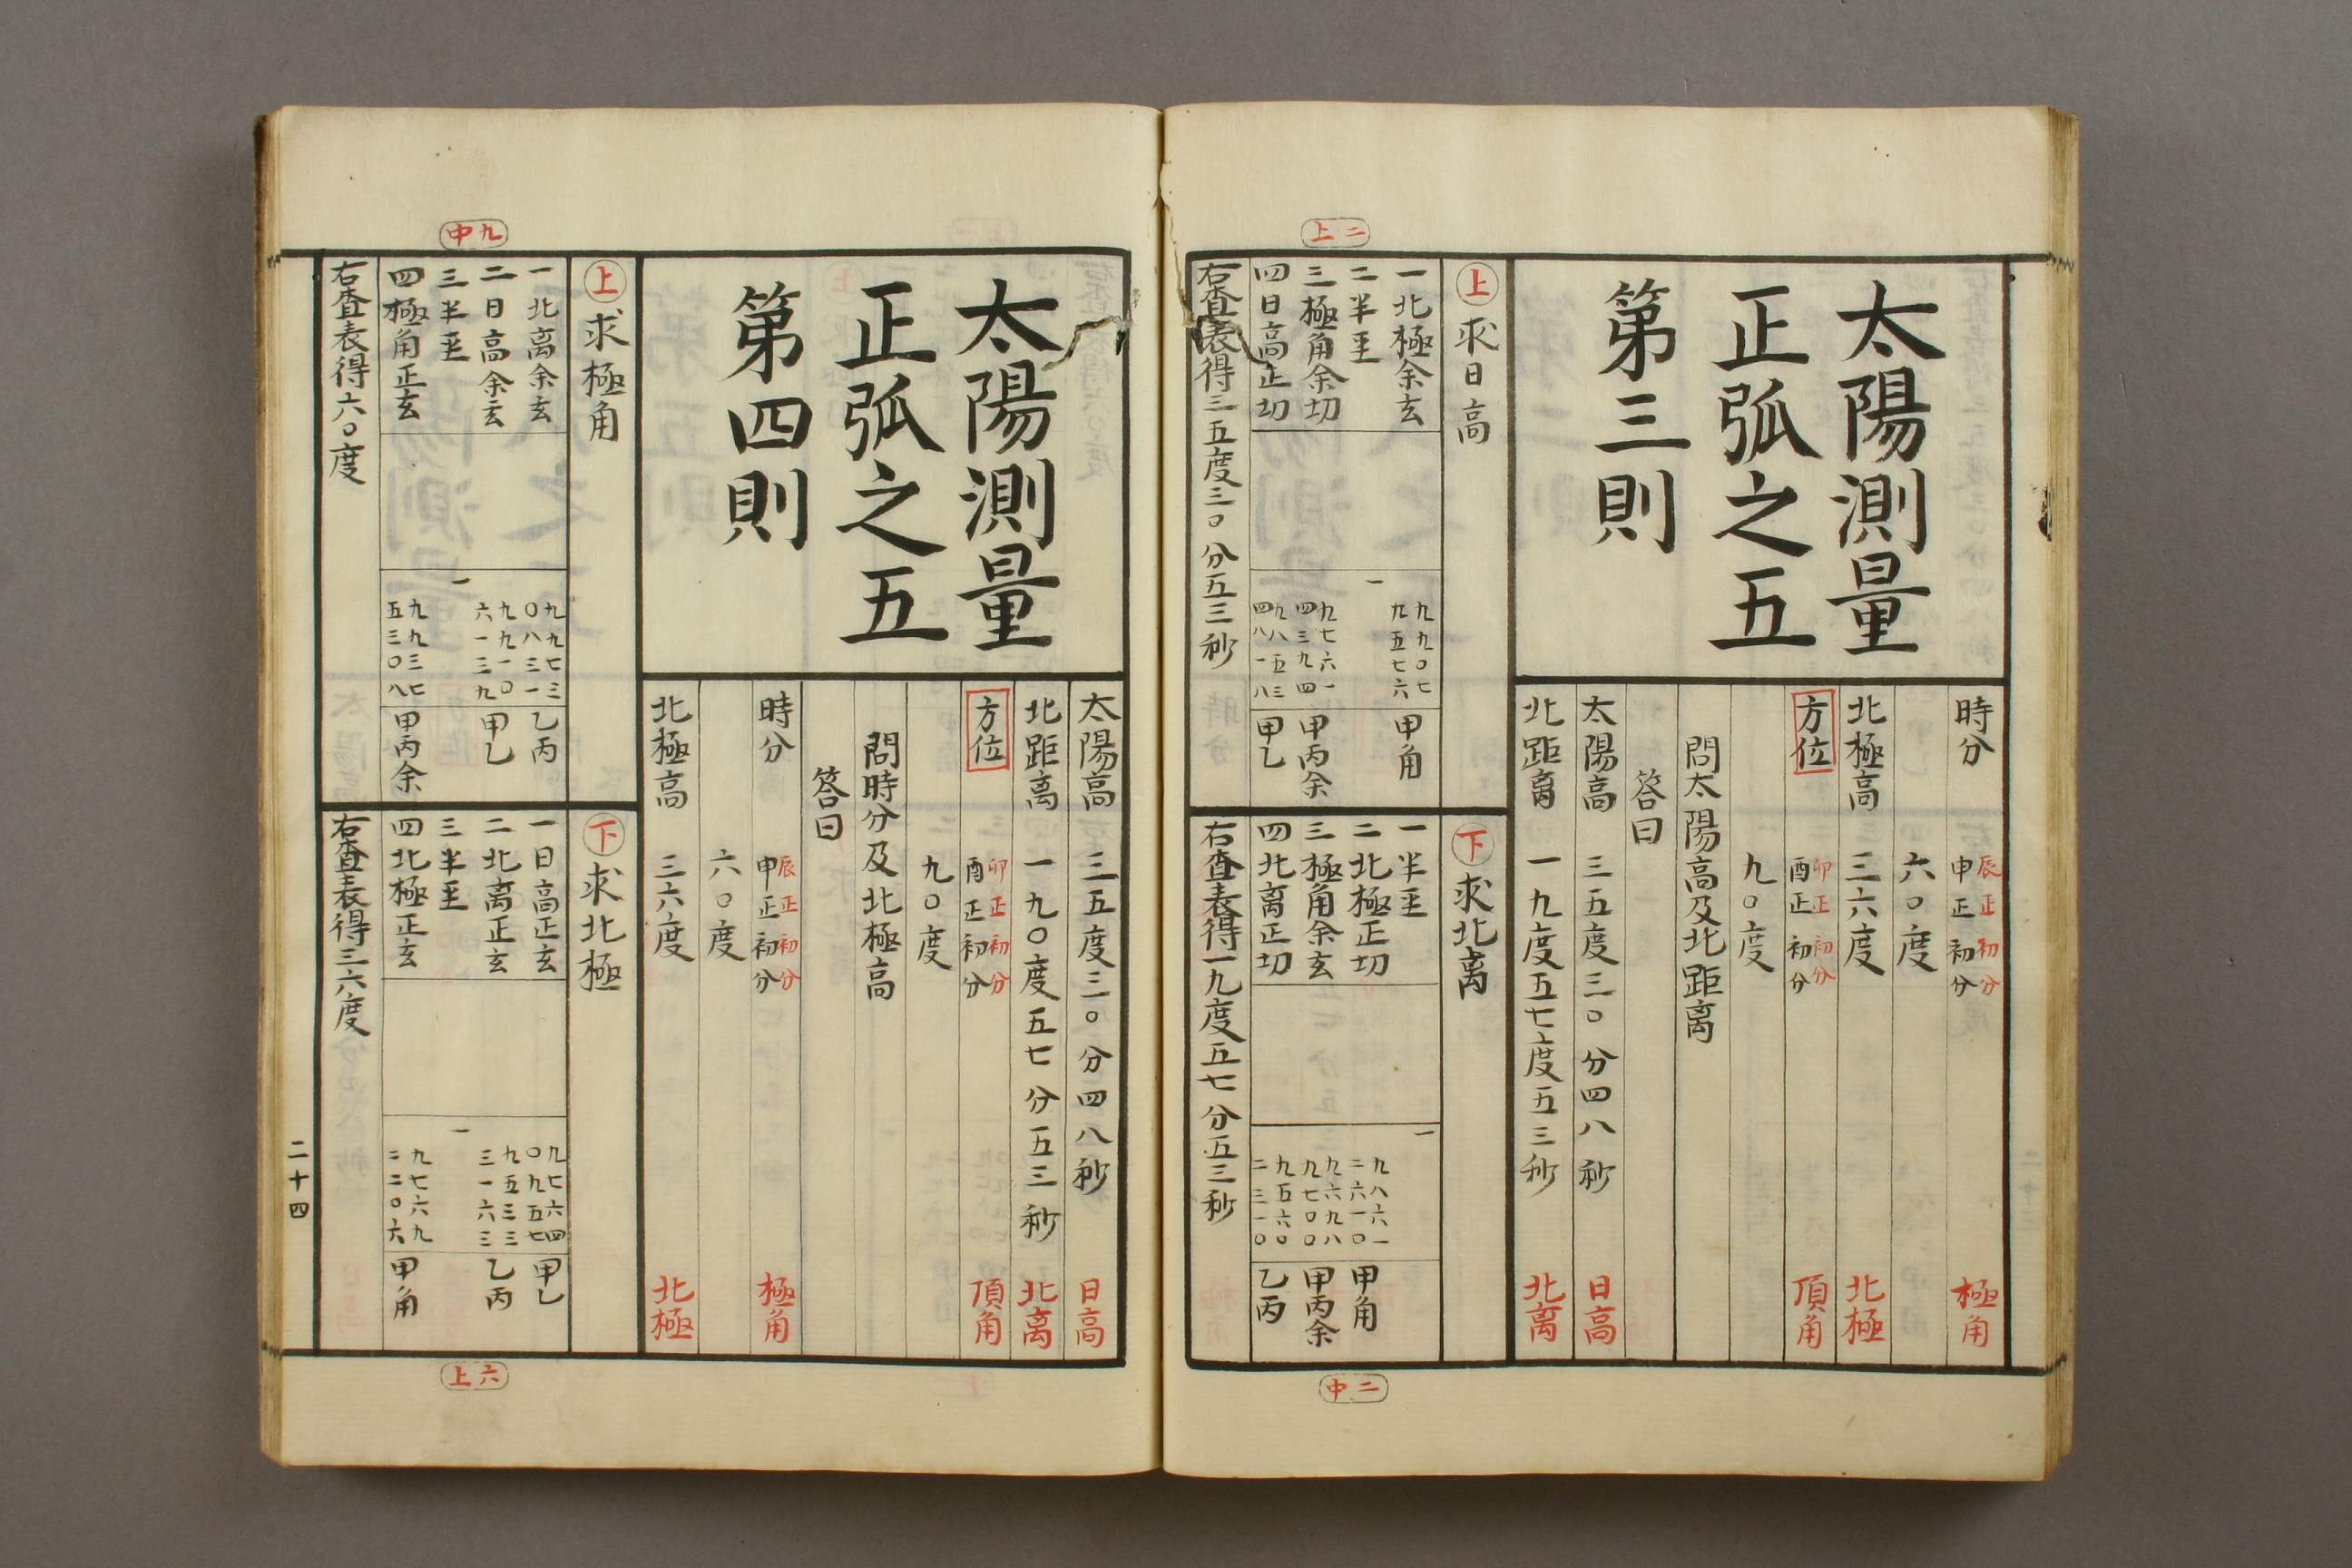 太陽測量
正弧之五
第三則
時分
辰正初分
申正初分
極角
六〇度
北極高
三六度
北極
方位
卯正初分
酉正初分
頂角
九〇度
問太陽高及北距离
答曰
太陽高
三五度三〇分四八秒
日高
北距离
一九度五七度五三秒
北离
二上
上求日高
一北極余玄
二半𦤳
三極角余切
四日高正切
一
九九〇七
九五七六
九七六一
四三九四
九八五三
四八一八
甲角
甲丙余
甲乙
右查表得三五度三〇分五三秒
下求北离
一半𦤳
二北極正切
三極角余玄
四北离正切
一
九八六一
二六一〇
九六九八
九七〇〇
九五六〇
二三一〇
甲角
甲丙余
乙丙
右查表得一九度五七分五三秒
二中
太陽測量
正弧之五
第四則
太陽高
三五度三〇分四八秒
日高
北距离
一九〇度五七分五三秒
北离
方位
卯正初分
酉正初分
頂角
九〇度
問時分及北極高
答曰
時分
辰正初分
申正初分
極角
六〇度
北極高
三六度
北極
九中
上求極角
一北离余玄
二日高余玄
三半𦤳
四極角正玄
一
九九七三
〇八三一
九九一〇
六一三九
九九三七
五三〇八
乙丙
甲乙
甲丙余
右查表得六〇度
下求北極
一日高正玄
二北离正玄
三半𦤳
四北極正玄
一
九七六四
〇九五七
九五三三
三一六三
九七六九
二二〇六
甲乙
乙丙
甲角
右查表得三六度
六上
二十四